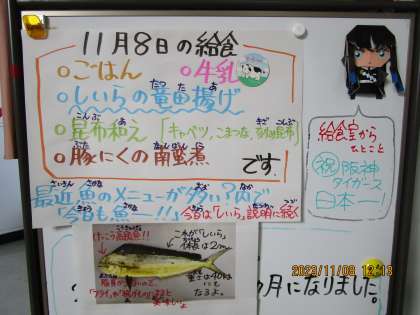 11月8日の給食
○ごはん ○牛乳
○しいらの竜田揚げ
○昆布和え「キャベツ、こまつな、きざみ昆布」
○豚にくの南蛮煮
です。
最近魚のメニューが多い?内で
「今日も魚ー!!」今日は「しいら」説明に続く
給食室から
ひとこと
祝 阪神
タイガース
日本一!
けっこう高級魚!!
これが「しいら」
体長は2m
重さ40kg
にも
なるよ。
美味しいよ
の月になりました。
2023/11/08 12:13